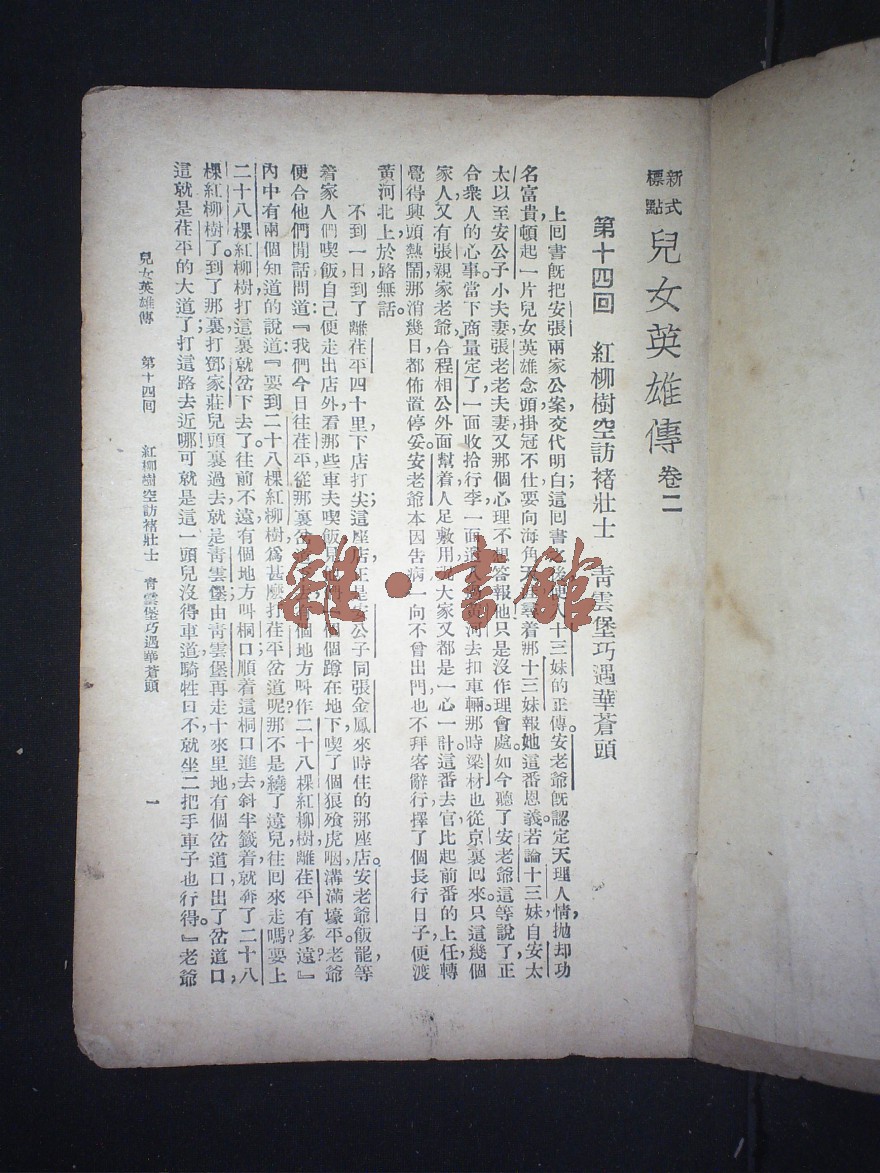 新式標點 兒女英雄傳 卷二
第十四回 紅柳樹空訪褚壯士 靑雲堡巧遇華蒼頭
上回書旣把安張兩家公案交代明白;這回書之後便入十三妹的正傳。安老爺旣認定天理人情,抛却功
名富貴,頓起一片兒女英雄念頭,掛冠不仕,要向海角天涯尋着那十三妹,報她這番恩義。若論十三妹,自安太
太以至安公子小夫妻,張老老夫妻,又那個心理不想答報他?只是沒作理會處。如今聽了安老爺這等說了,正
合衆人的心事。當下商量定了,一面收拾行李,一面過河去扣車輛。那時梁材也從京裏回來。只這幾個
家人,又有張親家老爺合程相公外面幫着,人足敷用,大家又都是一心一計。這番去官,比起前番的上任,轉
覺得興頭熱鬧。那消幾日,都佈置停妥。安老爺本因吿病,一向不曾出門,也不拜客辭行,擇了個長行日子,便渡
黃河北上。於路無話。
不到一日,到了離茌平四十里,下店打尖。這座店正是安公子同張金鳳來時住的那座店。安老爺飯罷,等
着家人們喫飯,自己便走出店外,看那些車夫喫飯。見他們一個個蹲在地下,喫了個狼飱虎咽,溝滿壕平。老爺
便合他們閒話,問道:『我們今日往茌平,從那裏岔道去有個地方,叫作二十八棵紅柳樹,離茌平有多遠?』
內中有兩個知道的說道:『要到二十八棵紅柳樹,爲甚麼打茌平岔道呢?那不是繞了遠兒往回來走嗎?要上
二十八棵紅柳樹,打這裏就岔下去了。往前不遠,有個地方叫桐口,順着這桐口進去,斜半籤着就奔了二十八
棵紅柳樹了。到了那裏,打鄧家莊兒頭裏過去,就是靑雲堡。由靑雲堡再走十來里地,有個岔道口,出了岔道口,
這就是茌平的大道了。打這路去近哪!可就是這一頭兒沒得車道,騎牲口,不就坐二把手車子也行得。』老爺
兒女英雄傳 第十四回 紅柳樹空訪褚壯士 靑雲堡巧遇華蒼頭 一
雜·書館